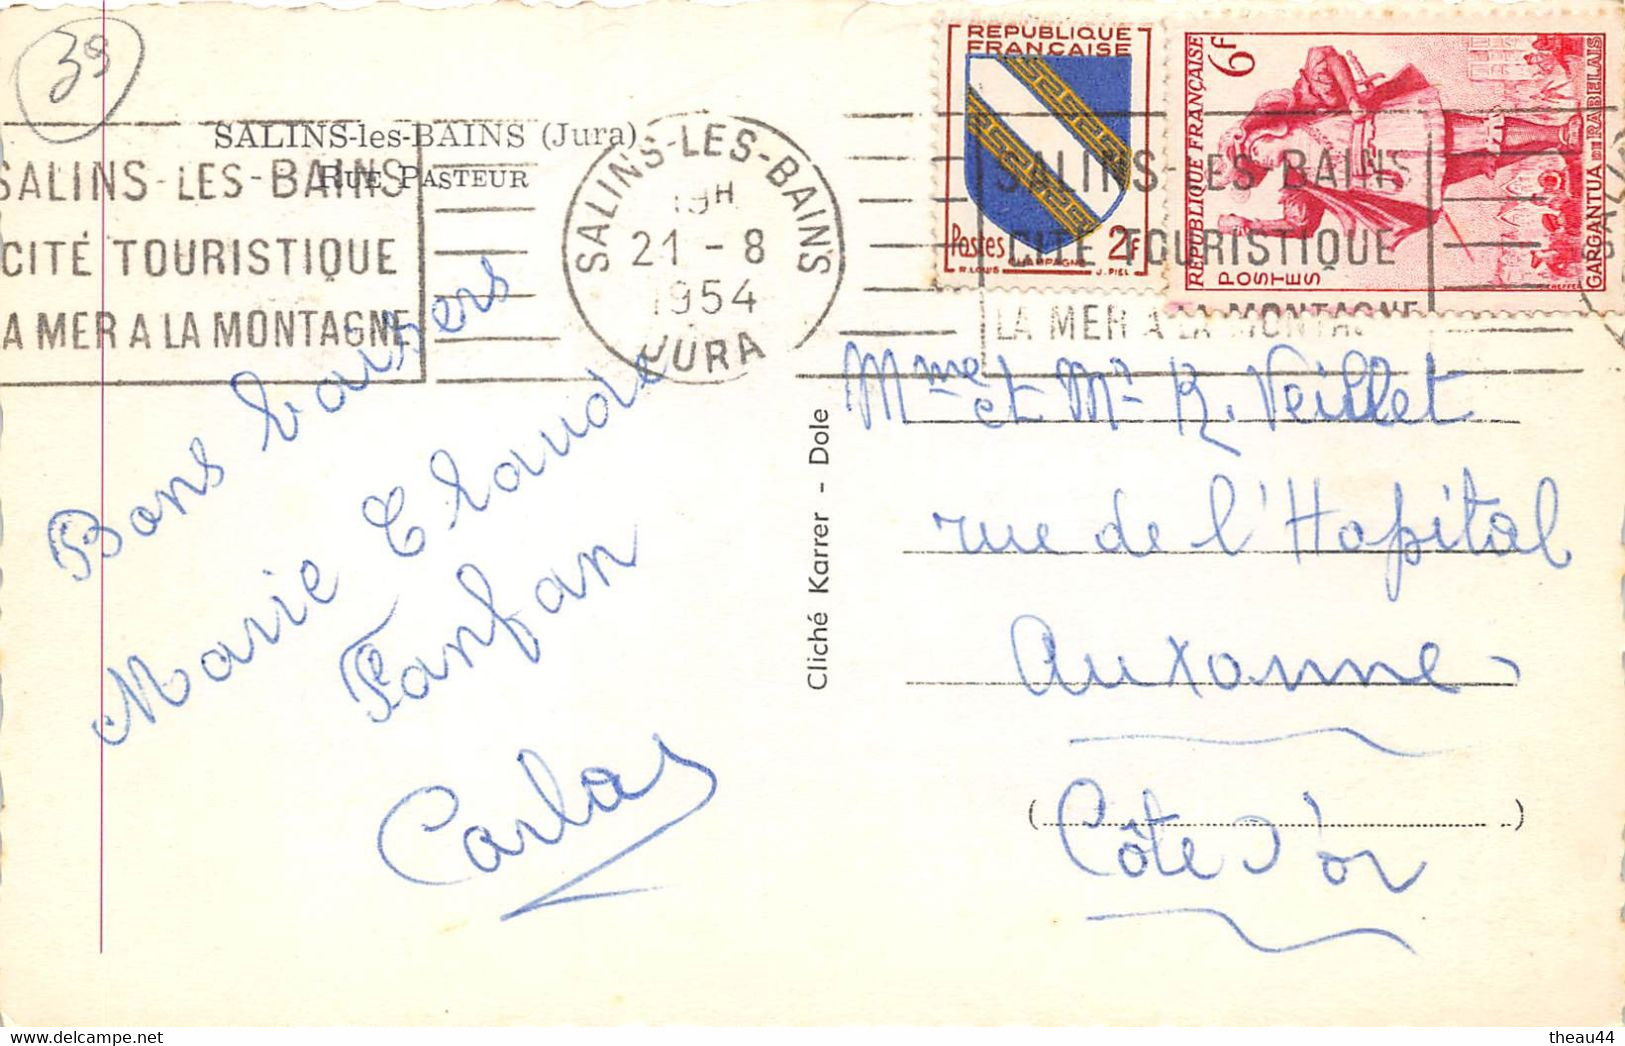 39
SALINS-les-BAINS (Jura)
RUE PASTEUR
SALINS-LES-BAINS
CITÉ TOURISTIQUE
LA MER A LA MONTAGNE
SALINS-LES-BAINS
19H
21-8
1954
JURA
REPUBLIQUE
FRANÇAISE
Postes 2F
CHAMPAGNE
R. LOUIS J. PIEL
REPUBLIQUE FRANÇAISE 6F
POSTES
GARGANTUA DE RABELAIS
SALINS-LES-BAINS
CITÉ TOURISTIQUE
LA MER A LA MONTAGNE
Bons baisers
Marie Claude
Fanfan
Carlas
Cliché Karrer - Dole
Mme et Mr R. Veillet
rue de l'Hopital
Auxonne
(Côte d'or)
theau44